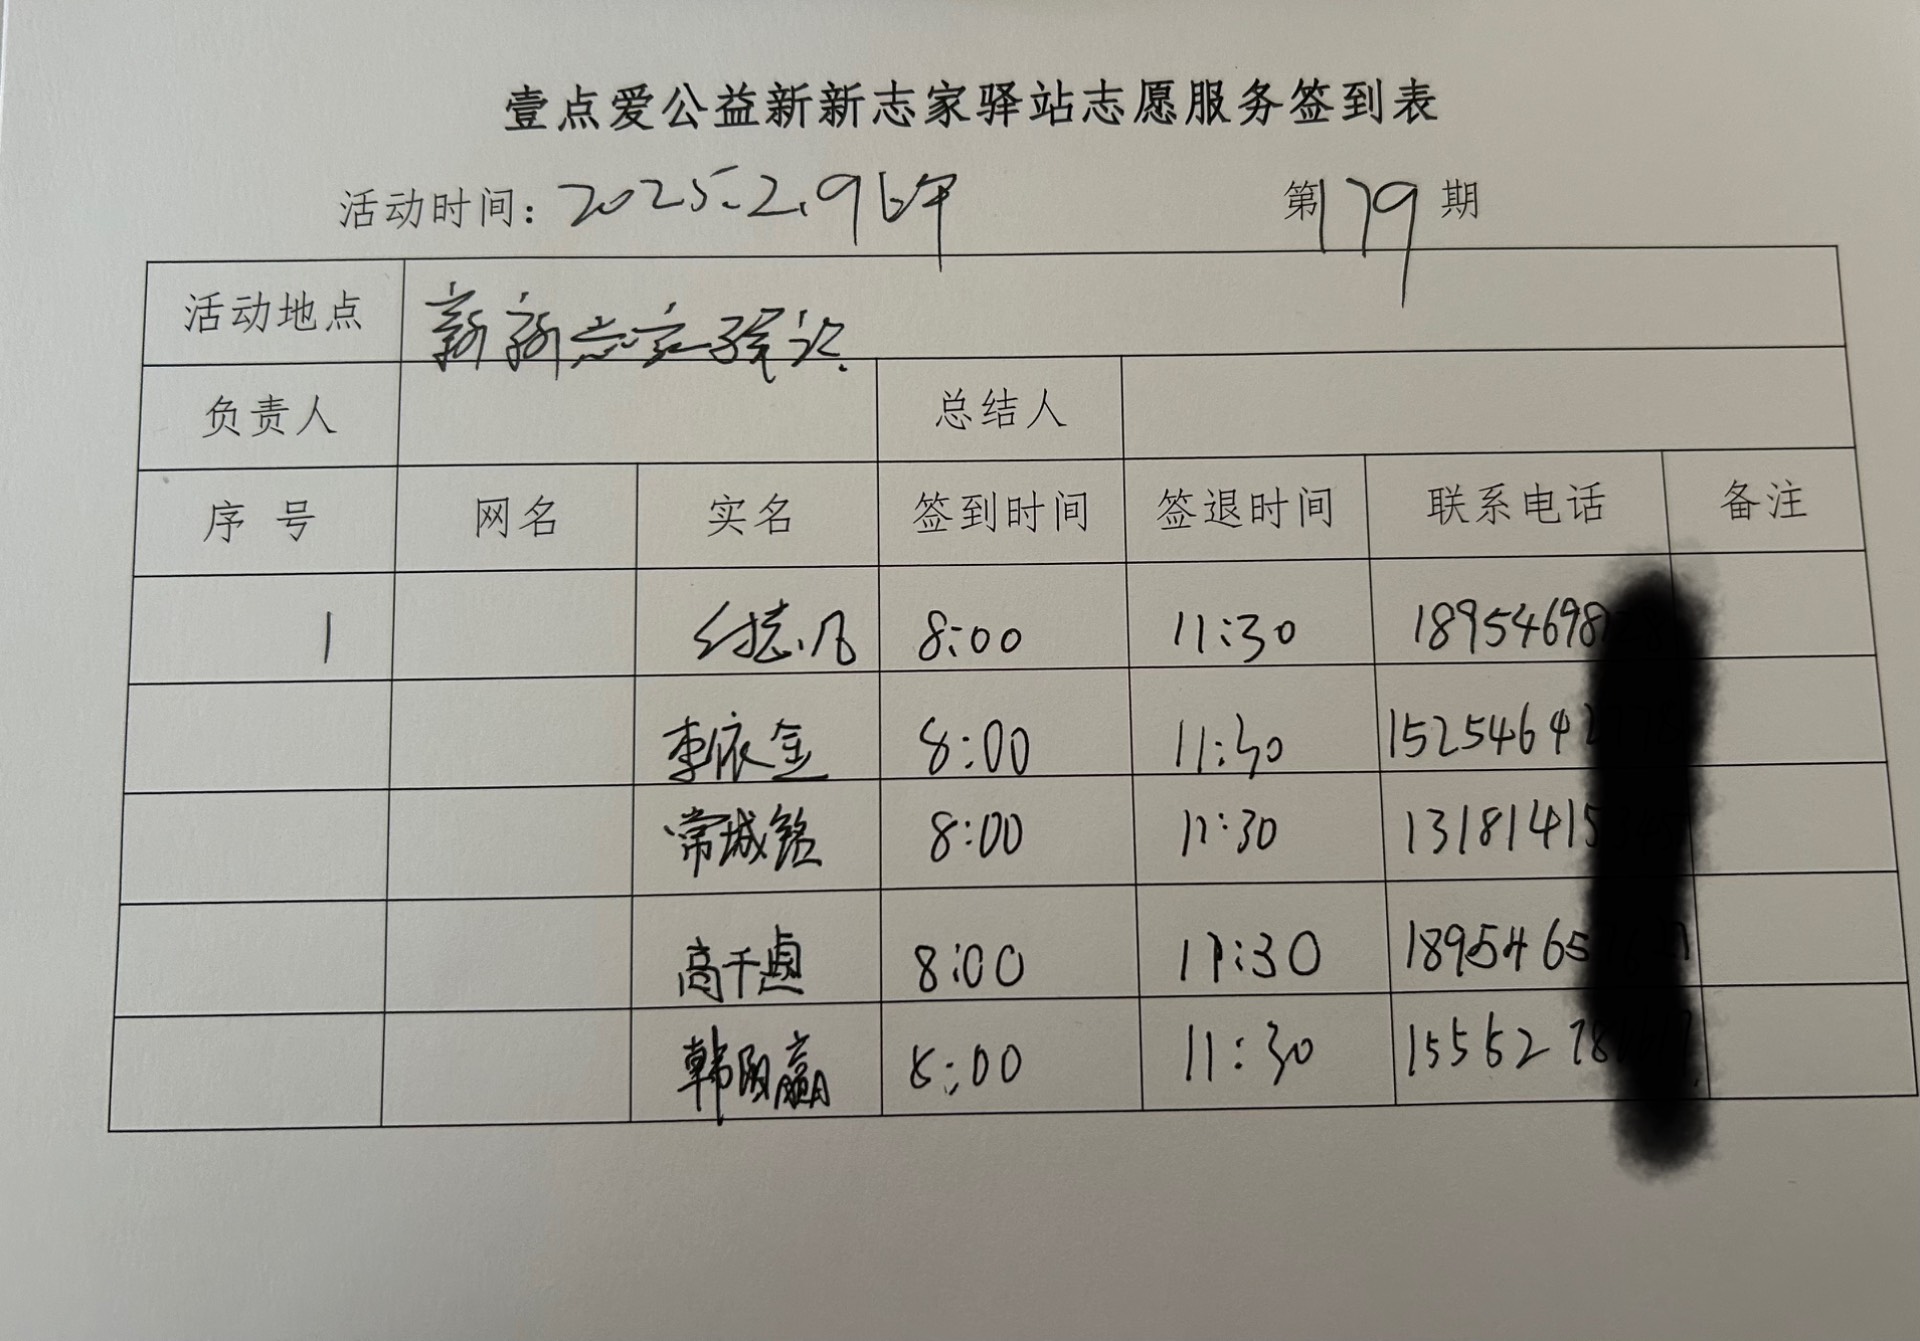 壹点爱公益新新志家驿站志愿服务签到表
活动时间: 2025.2.9上午 第179期
活动地点 新新志家驿站
负责人 总结人
序号 网名 实名 签到时间 签退时间 联系电话 备注
1 付志凡 8:00 11:30 18954698
李依金 8:00 11:30 15254642
常城铭 8:00 11:30 13181415
高千贞 8:00 11:30 1895465
韩阳赢 8:00 11:30 1555278